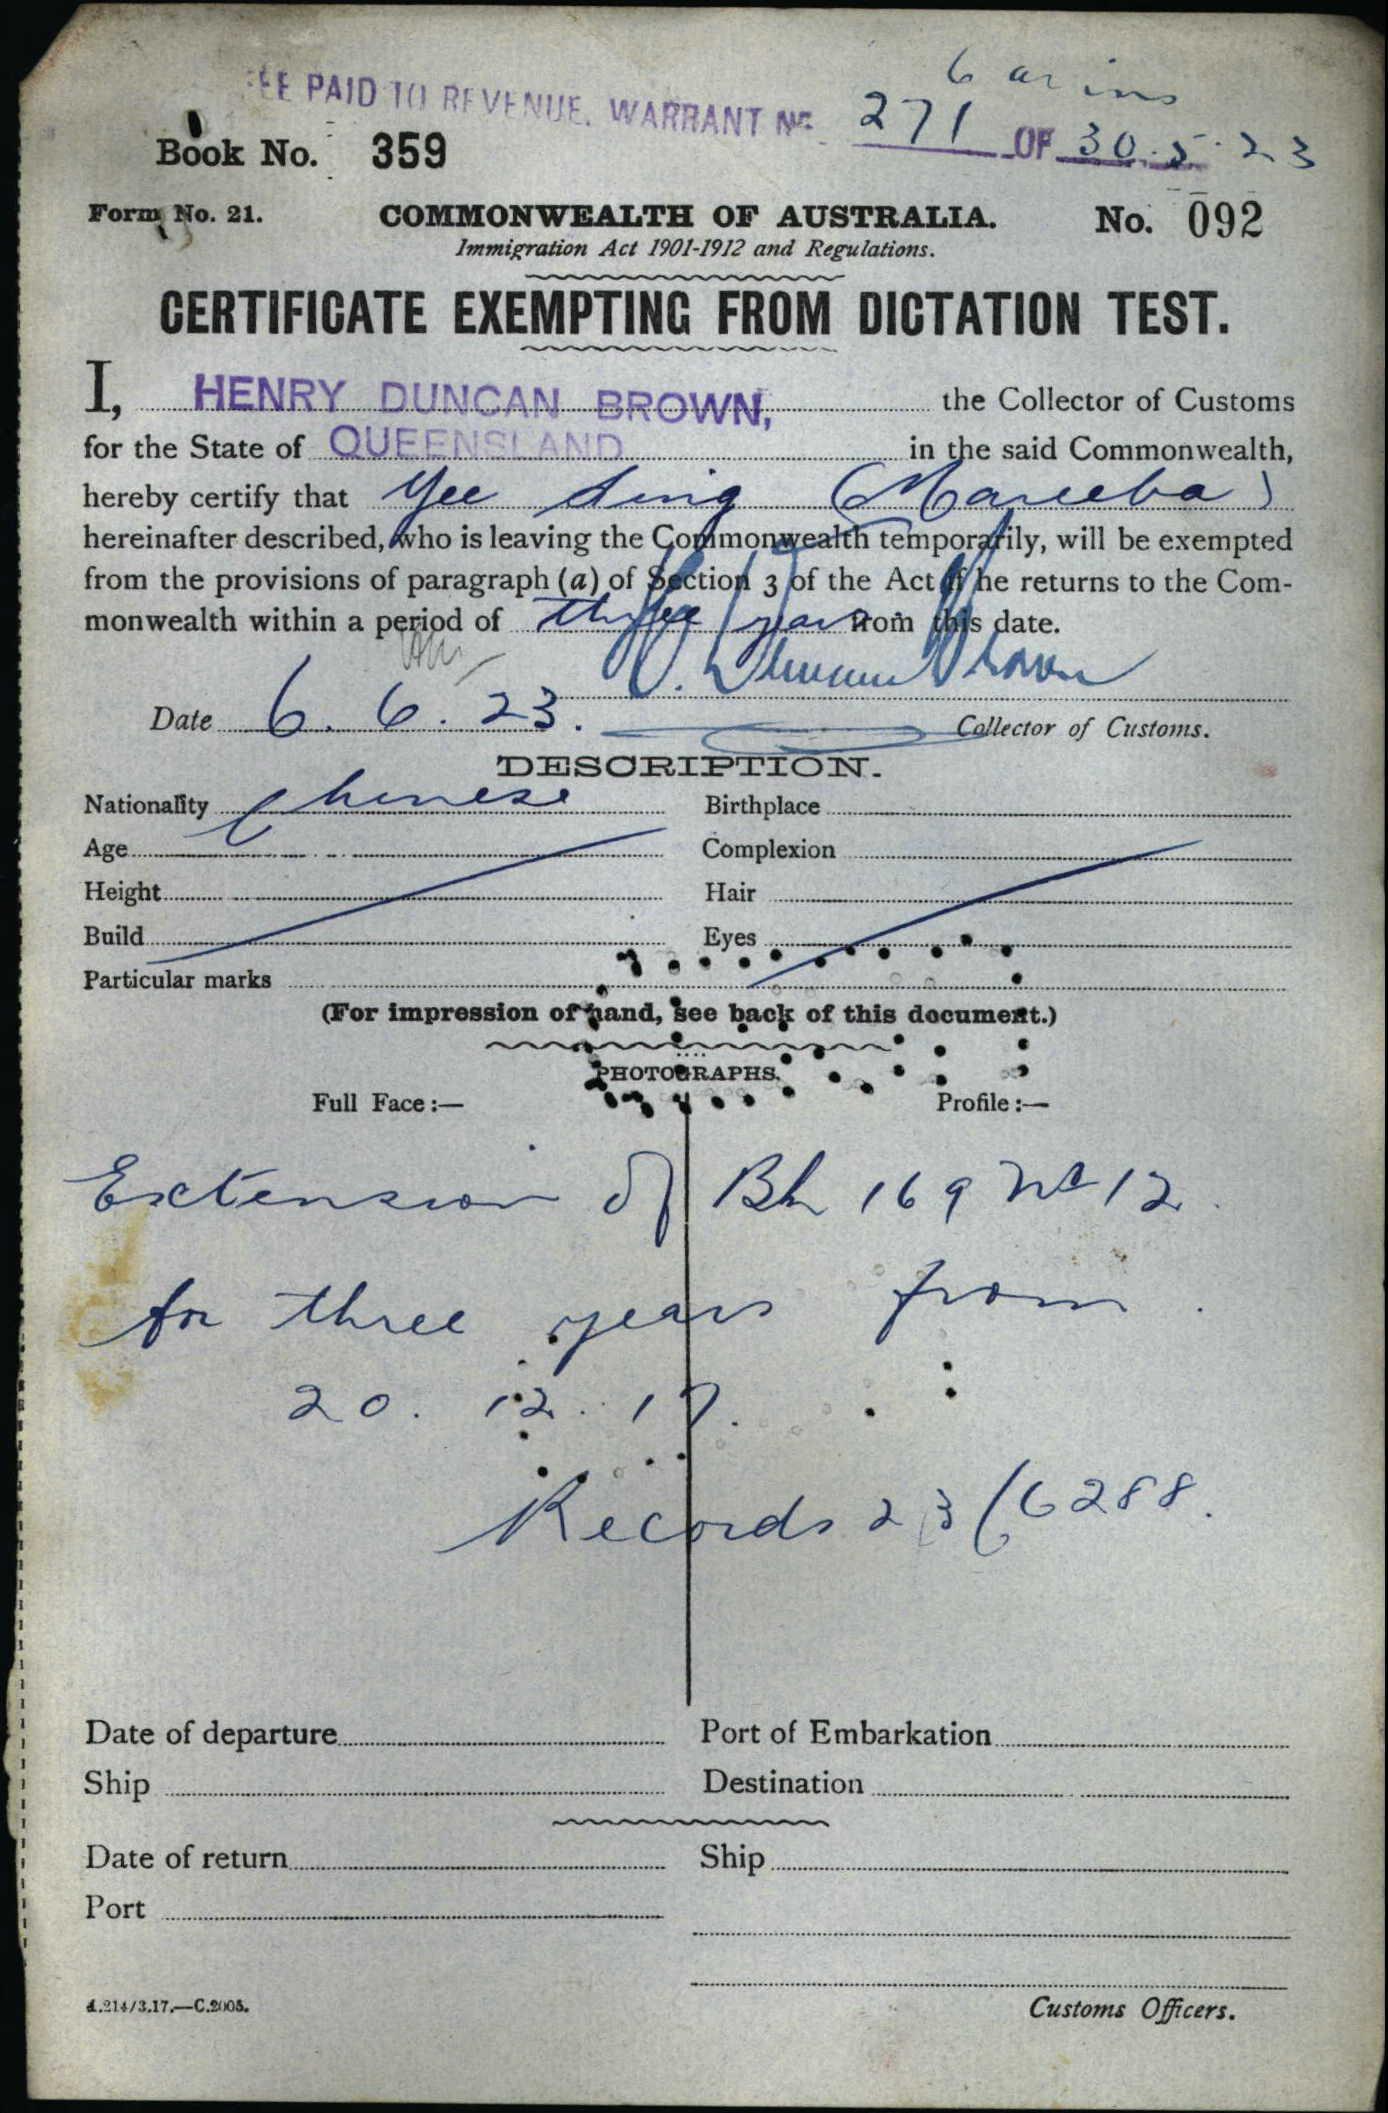 FEE PAID TO REVENUE. WARRANT No. 271 OF 30.5.23
Book No. 359
Form No. 21. COMMONWEALTH OF AUSTRALIA. No. 092
Immigration Act 1901-1912 and Regulations.
CERTIFICATE EXEMPTING FROM DICTATION TEST.
I, HENRY DUNCAN BROWN, the Collector of Customs
for the State of QUEENSLAND in the said Commonwealth,
hereby certify that Yee Sing (Mareeba)
hereinafter described, who is leaving the Commonwealth temporarily, will be exempted
from the provisions of paragraph (a) of Section 3 of the Act if he returns to the Com-
monwealth within a period of three years from this date.
H. Duncan Brown
Date 6. 6. 23. Collector of Customs.
DESCRIPTION.
Nationality Chinese Birthplace
Age Complexion
Height Hair
Build Eyes
Particular marks
(For impression of hand, see back of this document.)
PHOTOGRAPHS.
Full Face:— Profile:—
Extension of Bk 169 No 12.
for three years from
20. 12. 17.
Records 23/6288.
Date of departure Port of Embarkation
Ship Destination
Date of return Ship
Port
A.214/3.17.—C.2005. Customs Officers.